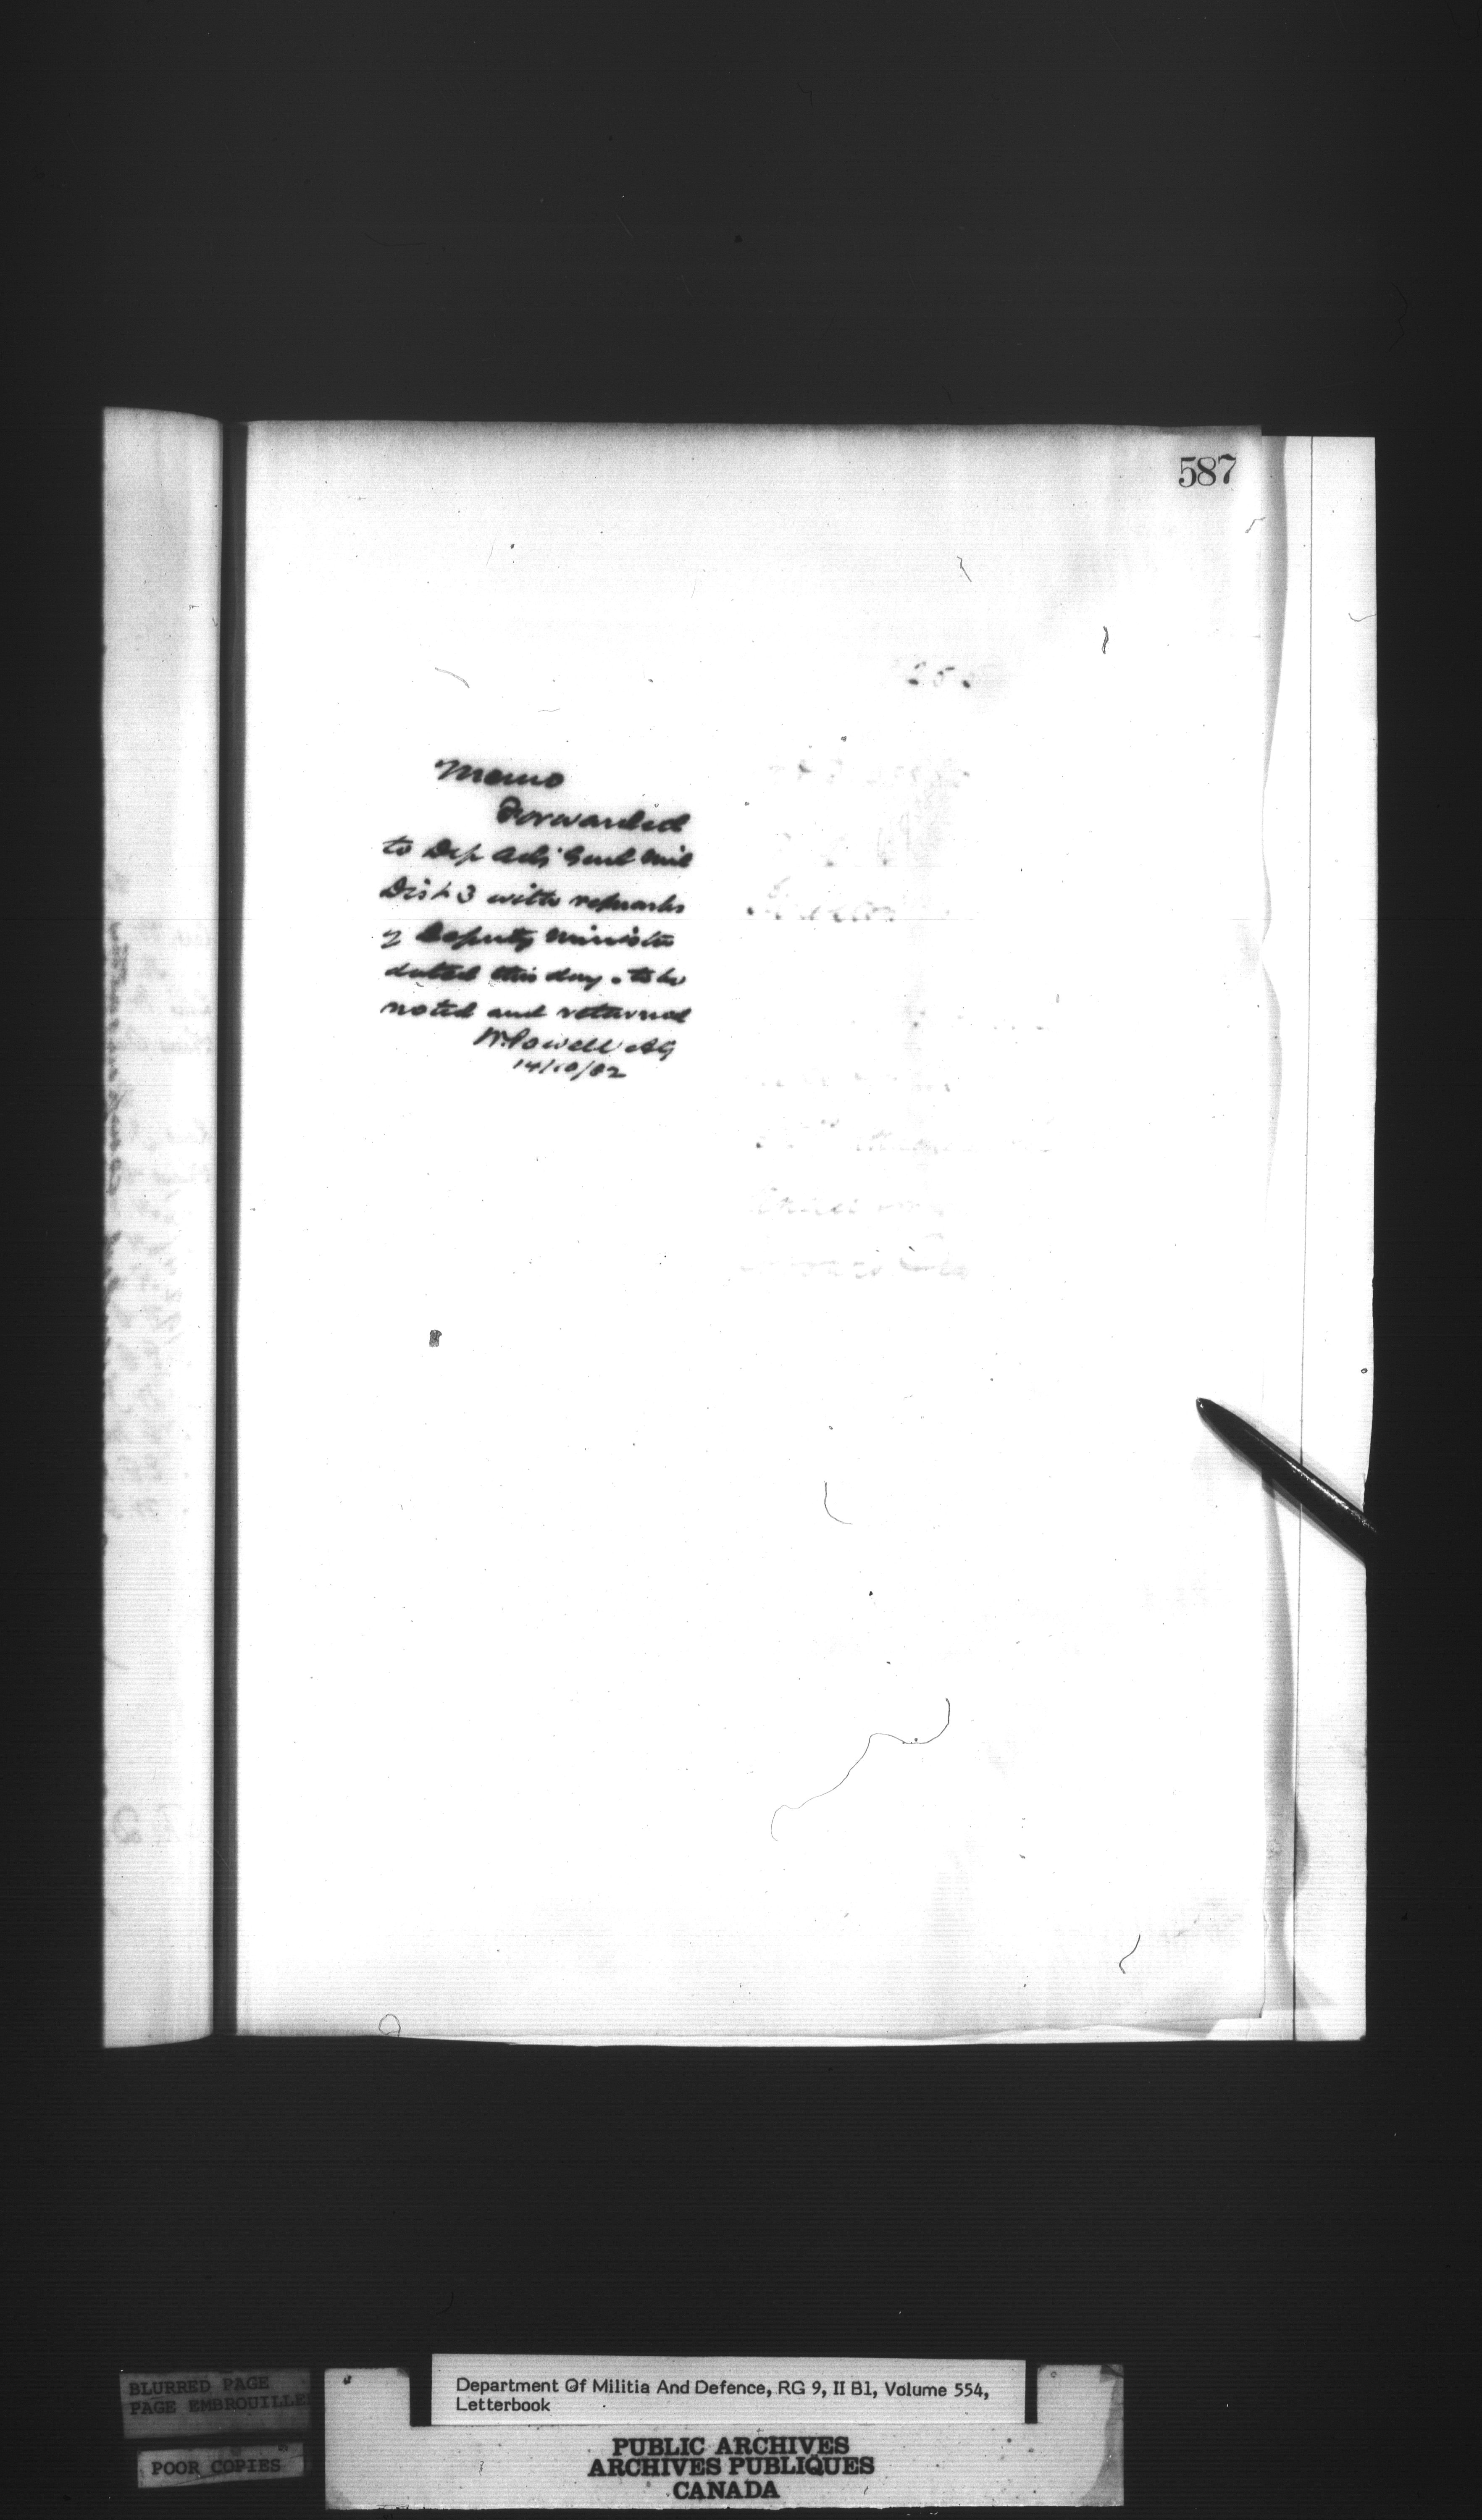 587
Memo
Forwarded
to Dep Adj Genl Mil
Dist 3 with remarks
of Deputy Minister
dated this day. to be
noted and returned
W. Powell AG
14/10/82
BLURRED PAGE
PAGE EMBROUILLE
POOR COPIES
Department Of Militia And Defence, RG 9, II B1, Volume 554,
Letterbook
PUBLIC ARCHIVES
ARCHIVES PUBLIQUES
CANADA